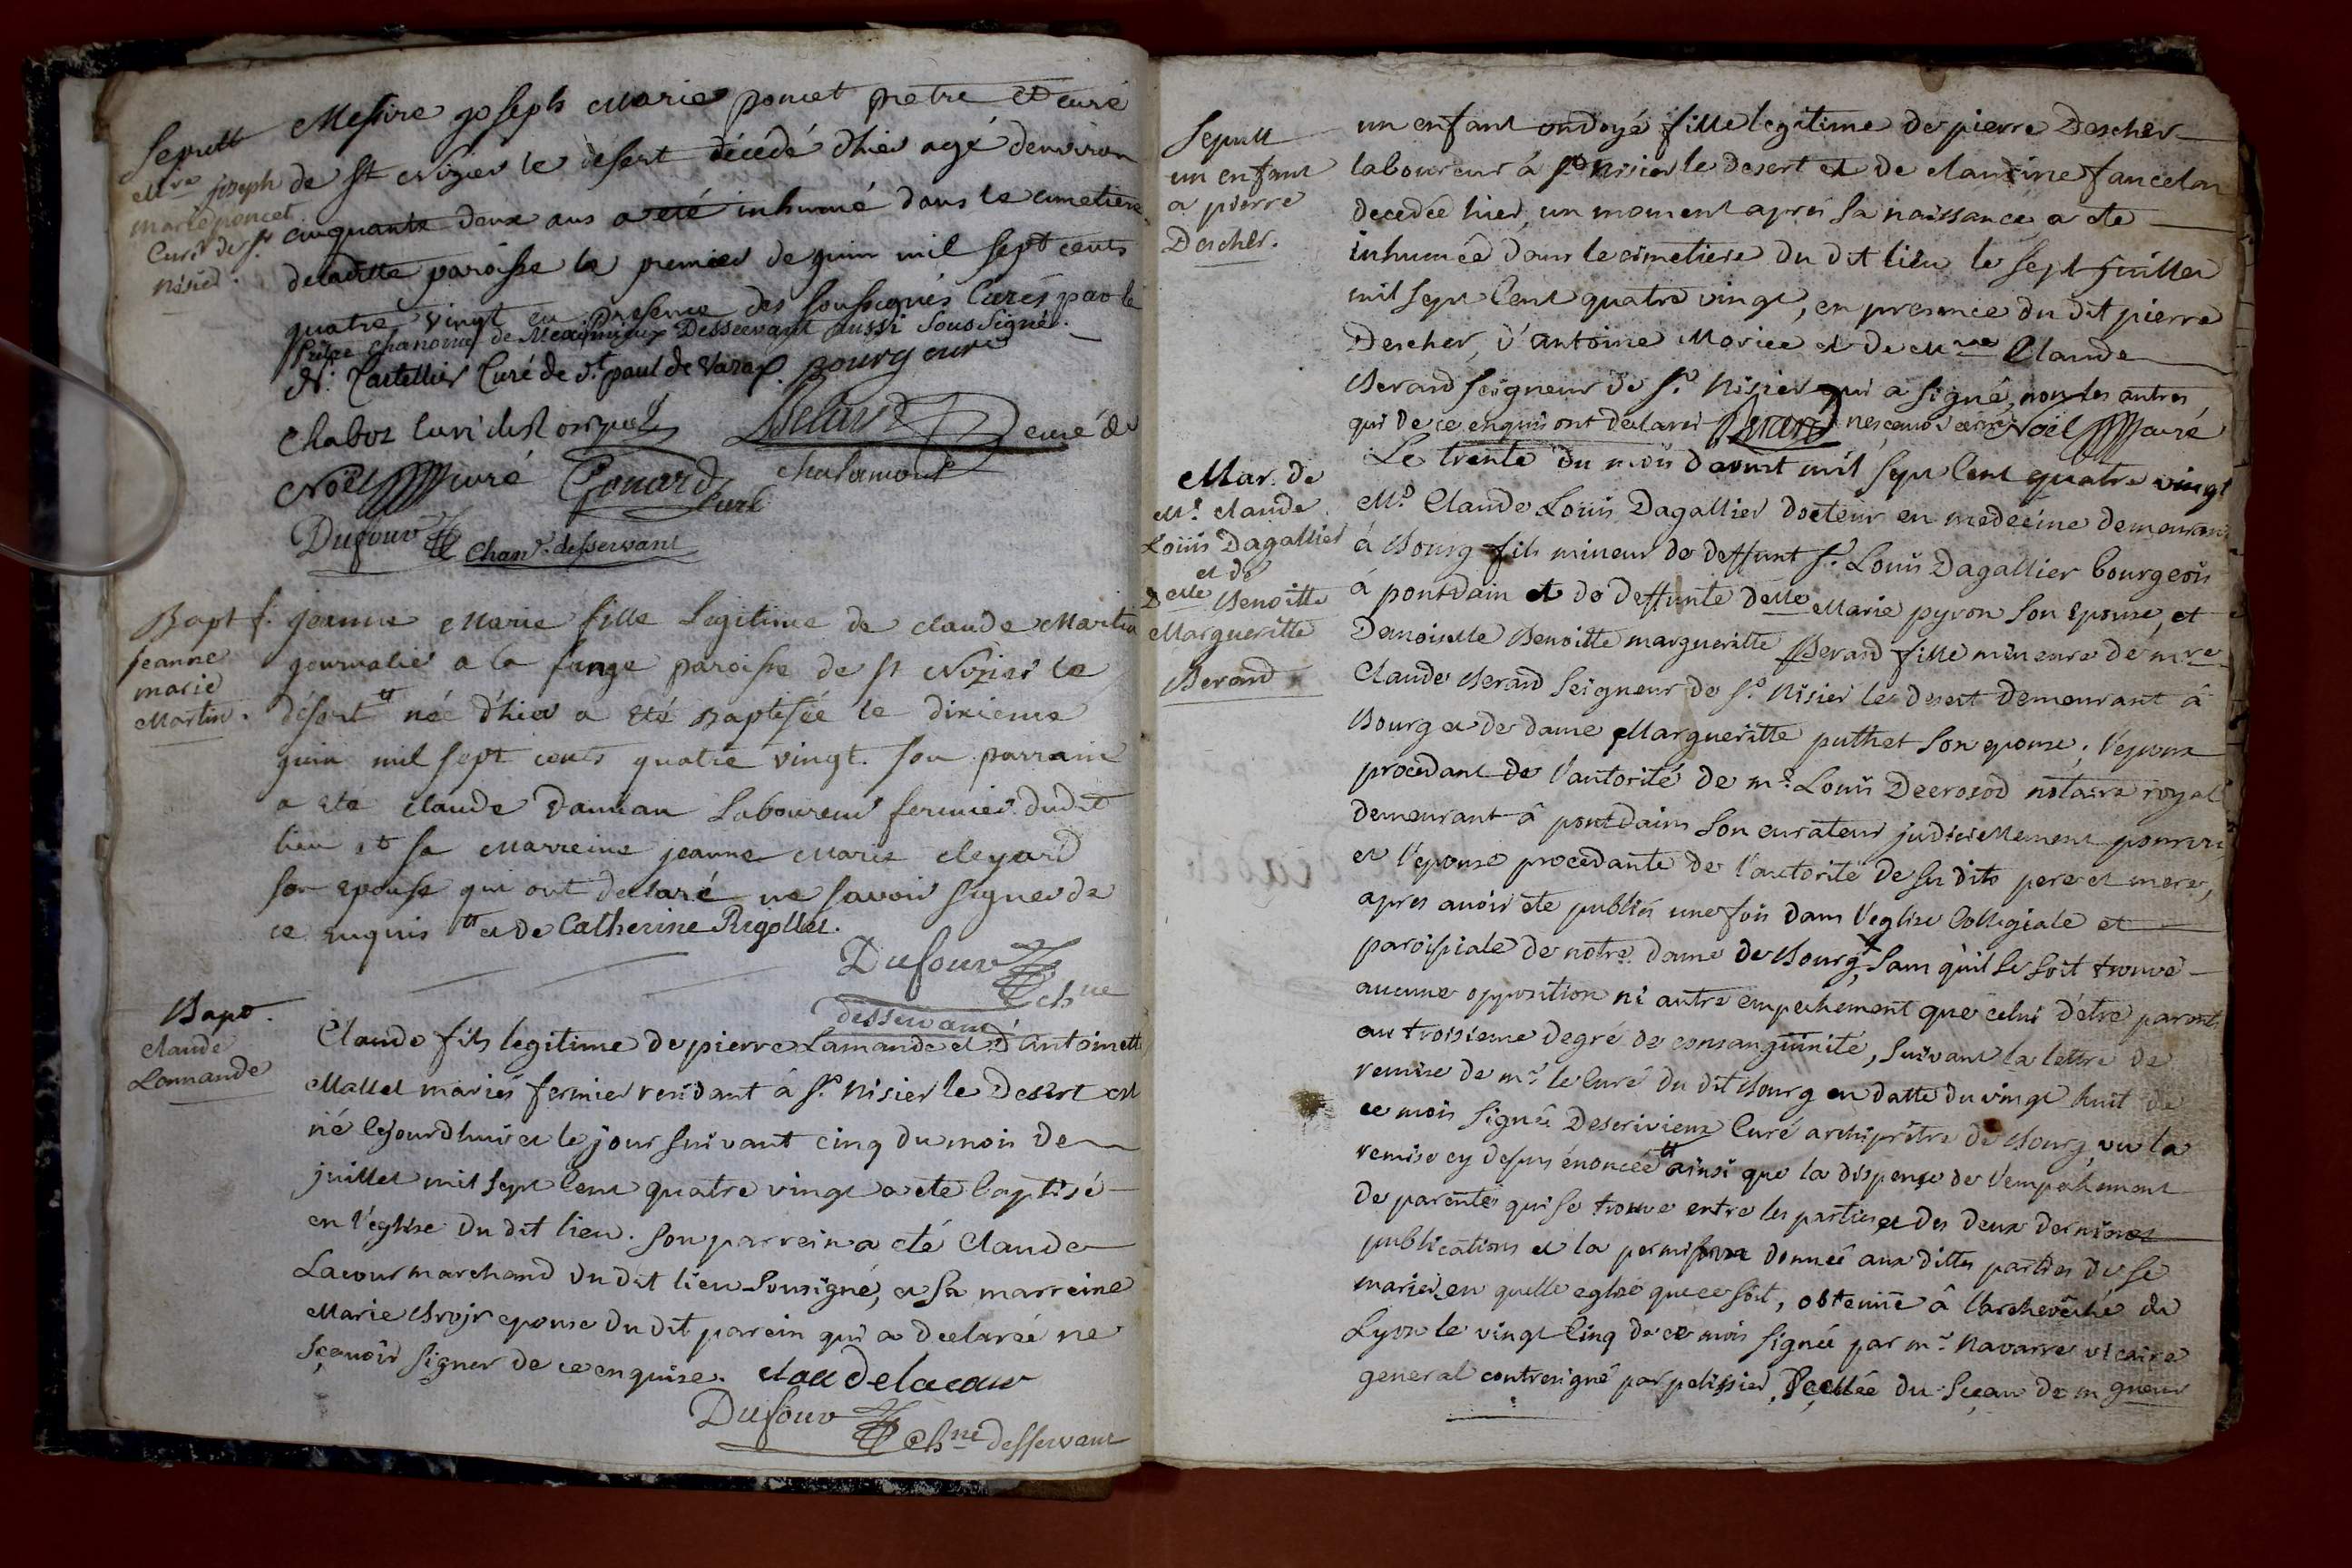 Sepult
Mre joseph
marie poncet
Curé de St
nisier.
Messire joseph Marie poncet pretre et curé
de St Nizier le desert décédé d'hier agé d'environ
cinquante deux ans a eté inhumé dans le cimetiere
deladitte paroisse le premier de juin mil sept cents
quatre vingt en presence des soussignés Curés par le
Prêtre chanoine de Meximieux Desservant aussi soussigné.
Castellier Curé de St paul de Varax. Bourg curé
Chaboz Curé
Belard curé de
chalamont
Noël curé Gonard Curé
Dufour Chane desservant
Bapt
jeanne
marie
Martin.
f. jeanne Marie fille Legitime de claude Martin
journalier a la fange paroisse de St Nizier le
désert tt née d'hier a eté Baptisée le dixieme
juin mil sept cents quatre vingt. son parrain
a eté claude Damian Laboureur fermier dudit
lieu et sa Marreine jeanne Marie cleyard
son epouse qui ont declaré ne savoir signer de
ce enquis tt et de Catherine Rigollet.
Dufour chne
desservant
Bapt.
claude
Lamande
Claude fils legitime de pierre Lamande et d'antoinette
Mallet mariés fermier residant à St. Nisier le Desert est
né cejourdhuis et le jour suivant cinq du mois de
juillet mil sept Cent quatre vingt a eté baptisé
en l'eglise du dit lieu. son parrein a eté Claude
Lacour marchand du dit lieu sousigné, et sa marreine
Marie epouse du dit parein qui a declarée ne
sçavoir signer de ce enquise. claudelacour
Dufour chne desservant
Sepult
un enfant
a pierre
Descher.
un enfant ondoyé fille legitime de pierre Descher
laboureur à St Nisier le desert et de claudine fancelon
decedée hier, un moment apres sa naissance, a ete
inhumée dans le cimetiere du dit lieu le sept juillet
mil sept Cent quatre vingt, en presence du dit pierre
Descher, d'antoine Morice et de Mre Claude
Berard seigneur de St. Nisier qui a signé, non les autres
qui de ce enquis ont declaré Berard ne sçavoir ecrire Noël curé
Mar. de
Mr. claude
Loüis Dagallier
et de
Delle Benoitte
Margueritte
Berard
Le trente du mois d'aoust mil sept Cent quatre vingt
Mr. Claude Loüis Dagallier docteur en medecine demeurant
à Bourg fils mineur de deffunt Sr. Loüis Dagallier bourgeois
à pontdain et de deffunte delle Marie pyron son epouse, et
Demoiselle Benoitte margueritte Berard fille mineure de mre
Claude Berard seigneur de St. Nisier le desert demeurant à
Bourg et de dame Margueritte puthet son epouse; l'epoux
procedant de l'autorité de mr. Louis Decrosod notaire royal
demeurant à pontdain son curateur judiciellement pourvu,
et l'epouse procedante de l'autorité de ses dits pere et mere,
apres avoir eté publiés une fois dans l'eglise Collegiale et
paroissiale de notre dame de Bourg, sans qu'il se soit trouvé
aucune opposition ni autre empechement que celui d'etre parents
au troisieme degré de consanguinité, suivant la lettre de
remise de mr. le Curé du dit Bourg en datte du vingt huit de
ce mois signée Descrivieux Curé archiprêtre de Bourg, vu la
remise cy dessus énoncée tt ainsi que la dispense de l'empechement
de parentés qui se trouve entre les parties, et des deux dernieres
publications et la permission donnée aux dittes parties de se
marier en quelle eglise que ce soit, obtenuë à l'archevêché de
Lyon le vingt Cinq de ce mois signée par mr. Navarre vicaire
general contresigné par pelissier, sçellée du sçeau de m gneur